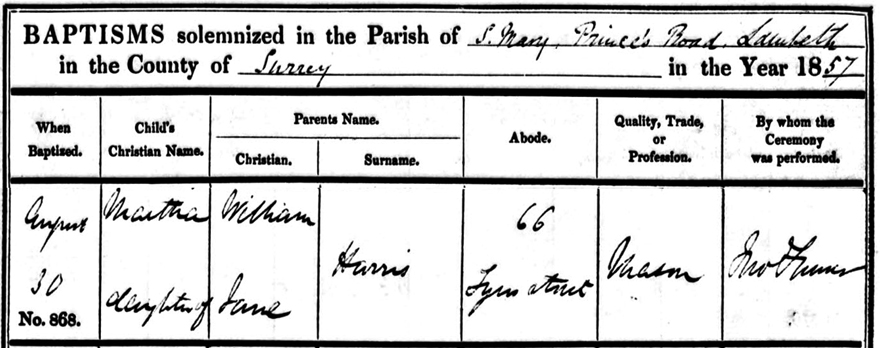 BAPTISMS solemnized in the Parish of S. Mary, Prince's Road, Lambeth
in the County of Surrey in the Year 1857
When Baptized. Child's Christian Name. Parents Name. Christian. Surname. Abode. Quality, Trade, or Profession. By whom the Ceremony was performed.
August Martha William 66
Harris Mason Jno
30 daughter of Jane street
No. 868.